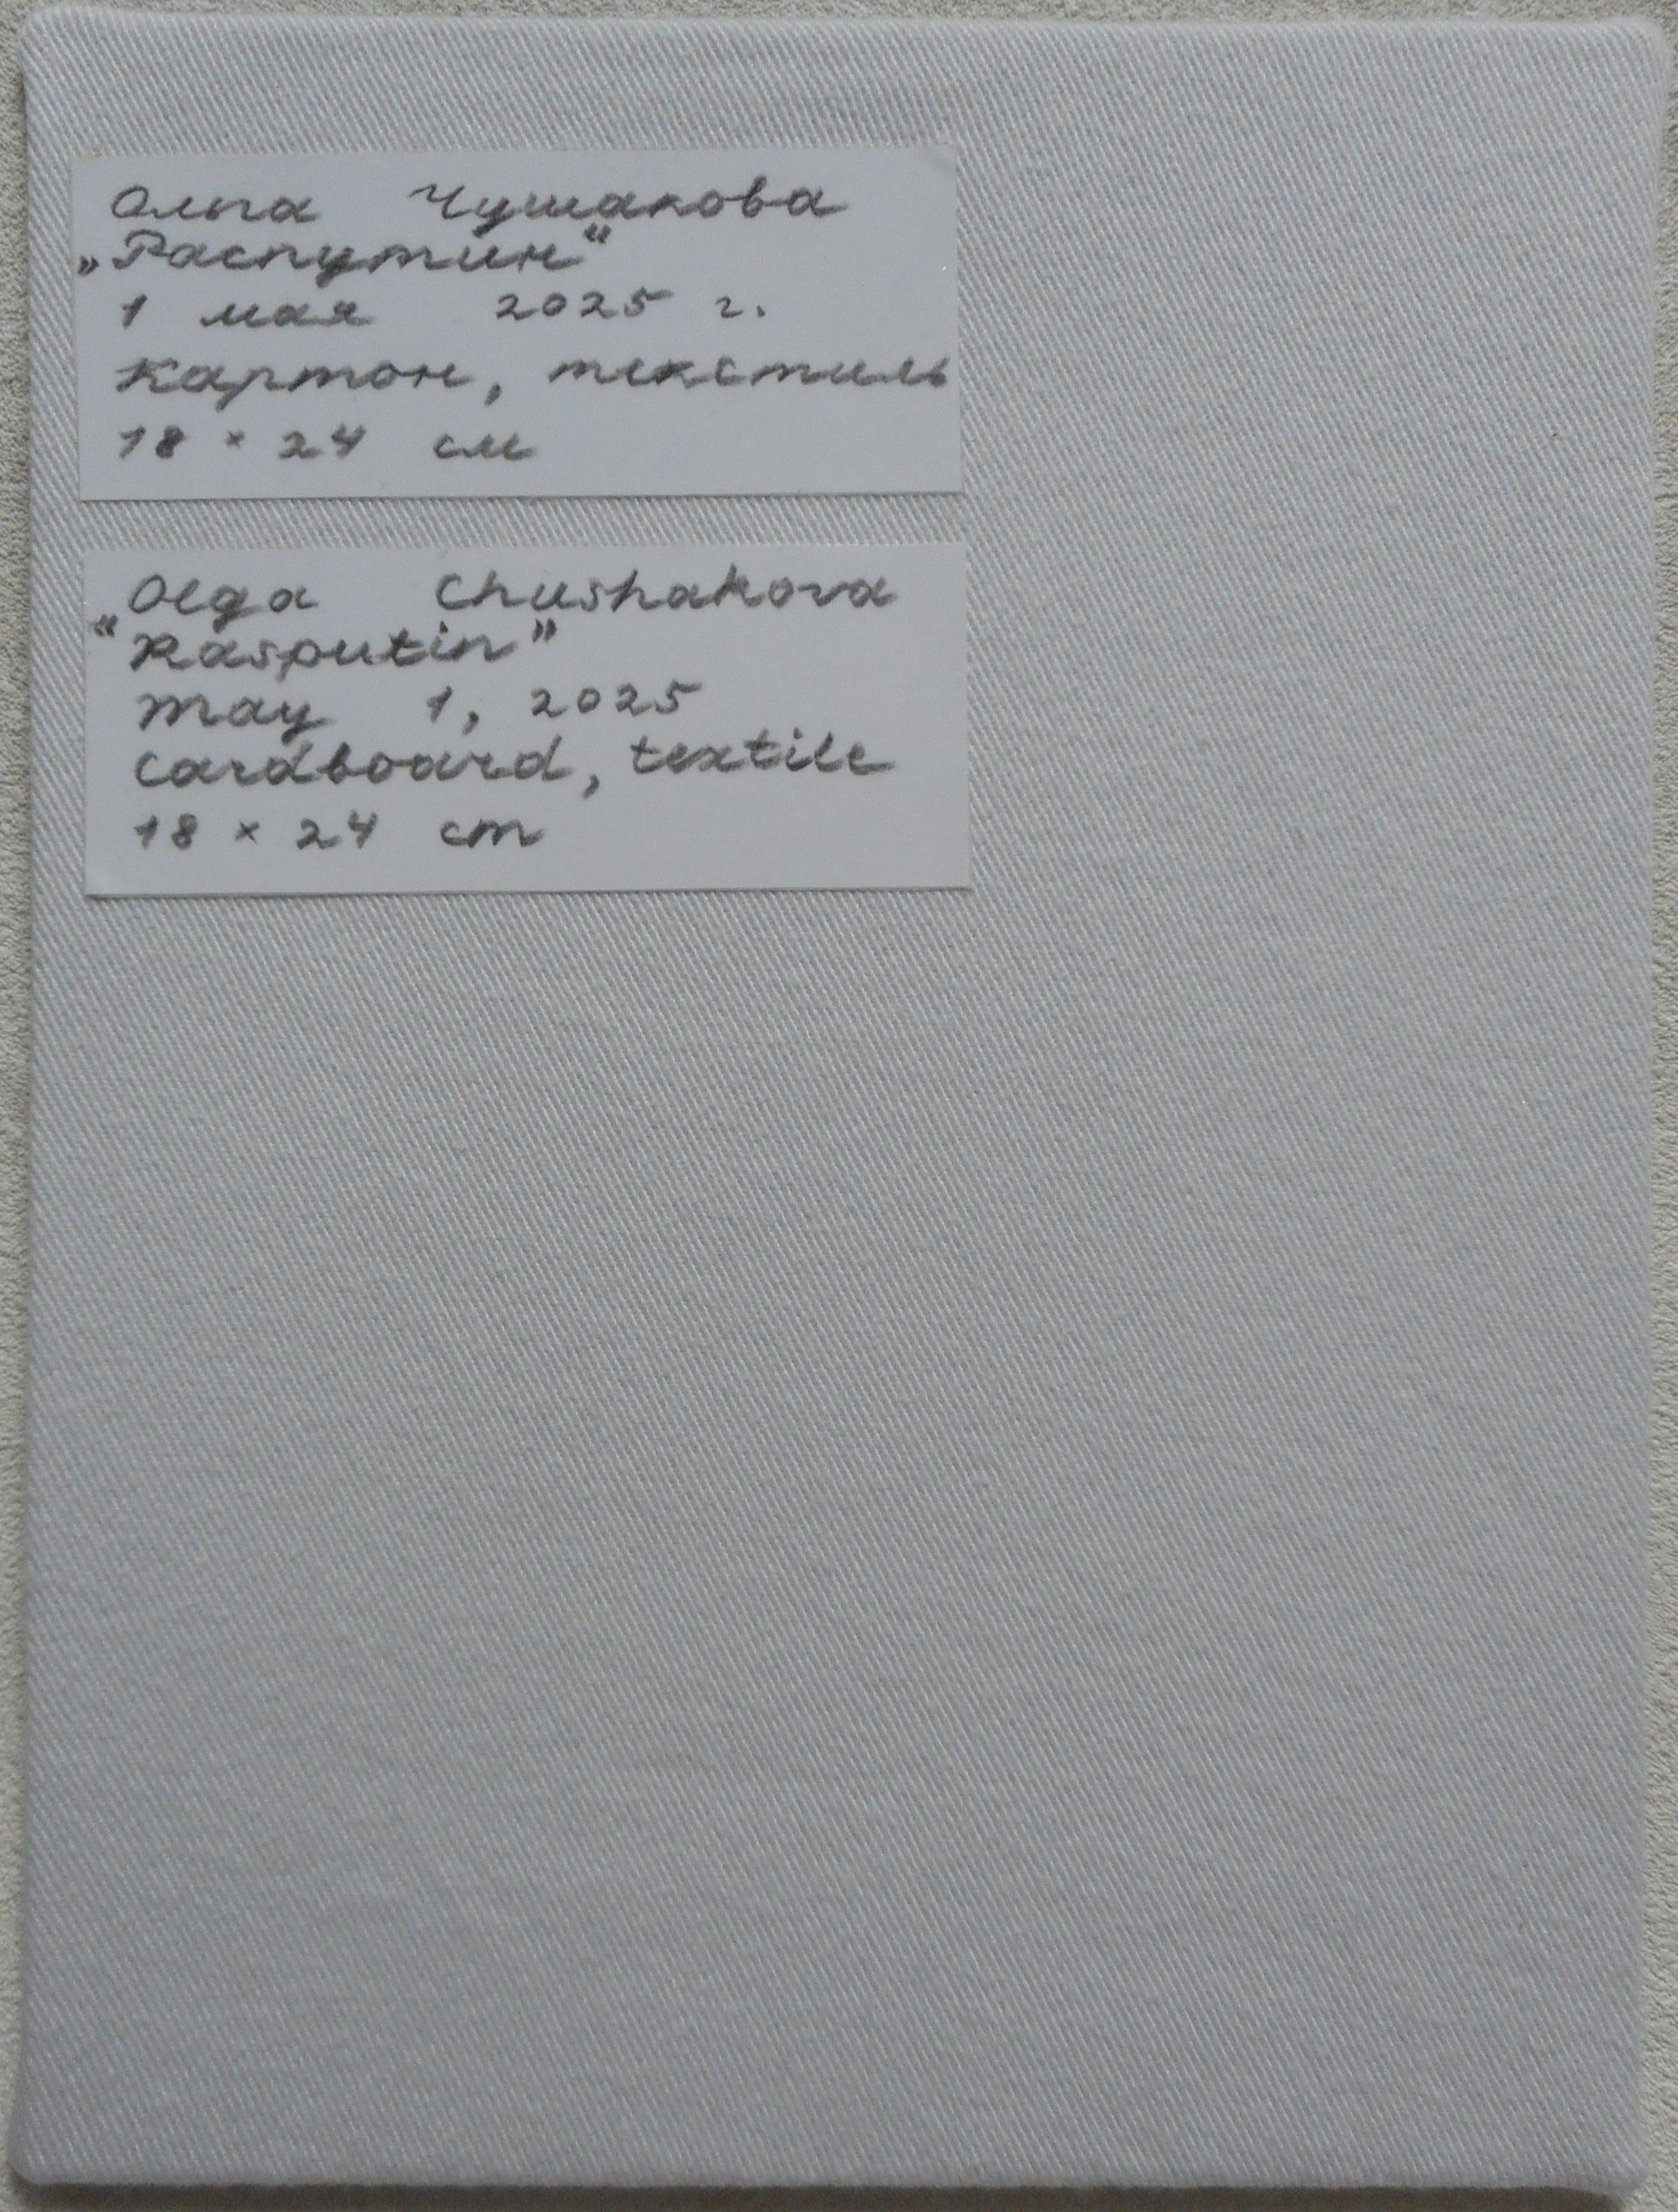 Ольга Чушакова
„Распутин“
1 мая 2025 г.
картон, текстиль
18 × 24 см
Olga Chushakova
“Rasputin”
may 1, 2025
cardboard, textile
18 × 24 cm